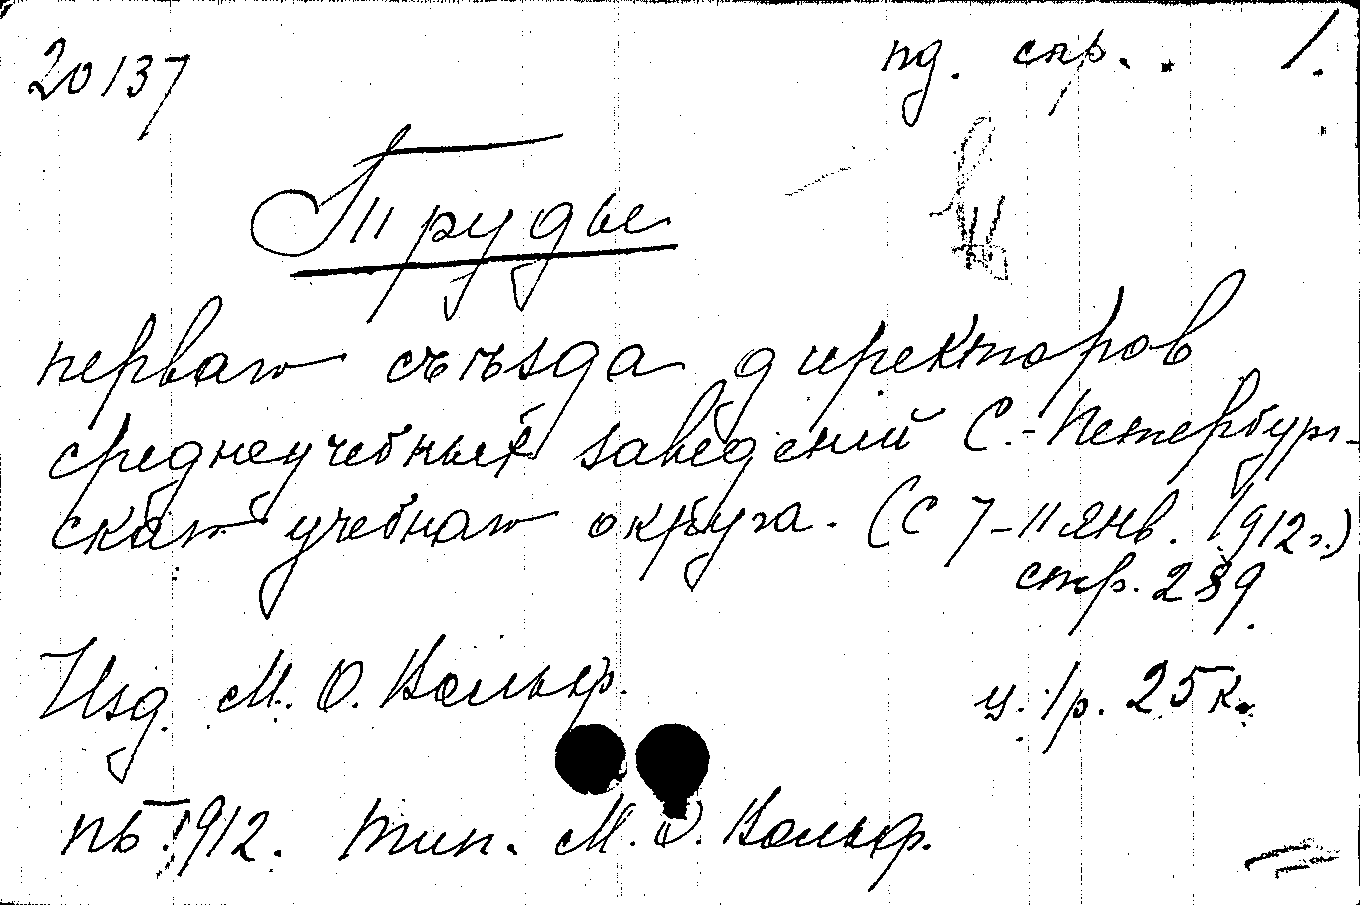 20137
пд. стр. 1.
Труды
перваго съѣзда директоров
среднеучебных заведений С.-Петербург-
скаго учебнаго округа. (С 7-11 янв. 1912 г.)
стр. 289.
Изд. М. О. Вольф.
ц. 1 р. 25 к.
пб. 1912. тип. М. О. Вольф.